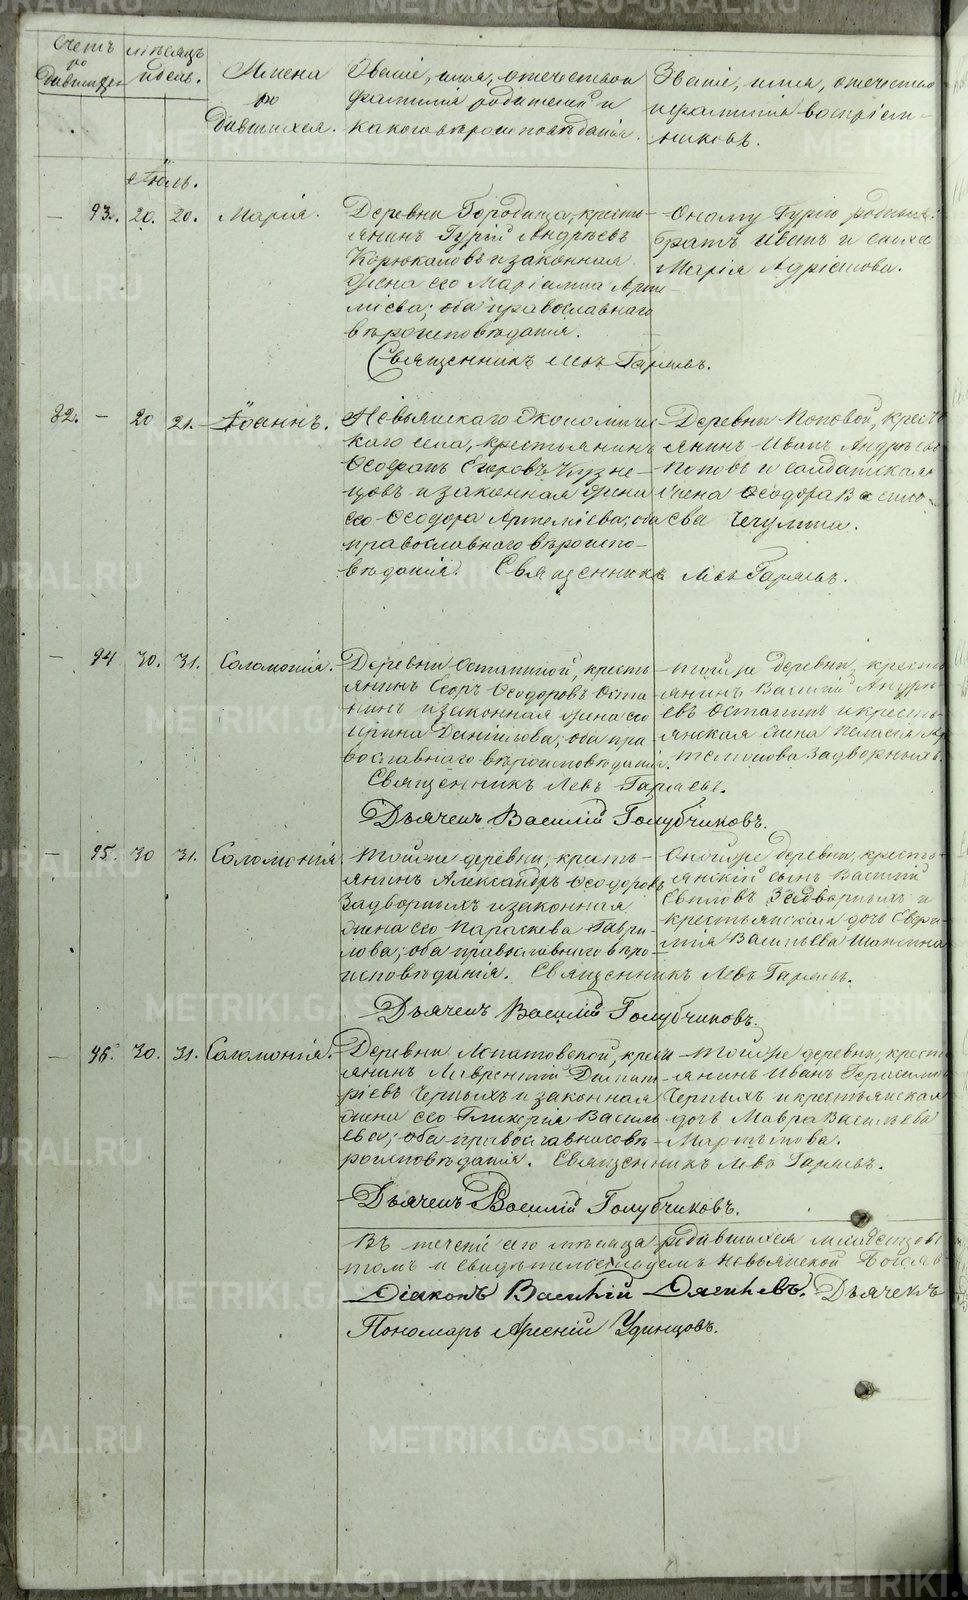 Счетъ
по
Мѣсяцъ
и день.
Имена
ро
дившихся.
Званіе, имя, отечество и
фамилія родителей и
какого вѣроисповѣданія.
Званіе, имя, отечество
и фамилія воспріем-
никовъ.
Іюль.
— 93. 20. 20. Марія.
Деревни Городища, кресть-
янинъ Гурій Андреевъ
Корюкаловъ и законная
жена его Маріамна Арте-
міева; оба православнаго
вѣроисповѣданія.
Священникъ Левъ Гаряевъ.
Оному Гурію родный
братъ Иванъ и сноха
Марія Адріанова.
82. — 20 21. Іоаннъ.
Невьянскаго Экономичес
каго села, крестьянинъ
Ѳеофанъ Егоровъ Кузне-
цовъ и законная жена
его Ѳеодора Артеміева; оба
православнаго вѣроиспо-
вѣданія. Священникъ Левъ Гаряевъ.
Деревни Поповой, кресть
янинъ Иванъ Андреевъ
Поповъ и солдатская
жена Ѳеодора Василь-
ева Чечулина.
— 94 30. 31. Соломонія.
Деревни Останиной, кресть-
янинъ Егоръ Ѳеодоровъ Оста-
нинъ и законная жена его
Ирина Даніилова; оба пра-
вославнаго вѣроисповѣданія.
Священникъ Левъ Гаряевъ.
Дьячекъ Василій Голубчиковъ.
Тойже деревни, кресть
янинъ Василій Андре
евъ Останинъ и кресть-
янская жена Пелагія Ар
темонова Задворныхъ.
— 95. 30 31. Соломонія.
Тойже деревни, кресть-
янинъ Александръ Ѳеодоровъ
Задворныхъ и законная
жена его Параскева Гаври-
лова; оба православнаго вѣро-
исповѣданія. Священникъ Левъ Гаряевъ.
Дьячекъ Василій Голубчиковъ.
Онойже деревни, кресть-
янскій сынъ Василій
Задворныхъ и
крестьянская дочь
Васильева
— 96. 30. 31. Соломонія.
Деревни Лопатовской, крест
янинъ Лаврентій Димит-
ріевъ Черныхъ и законная
жена его Гликерія Василь
ева; оба православнаго вѣ-
роисповѣданія. Священникъ Левъ Гаряевъ.
Дьячекъ Василій Голубчиковъ.
Тойже деревни, кресть
янинъ Иванъ Герасимов
Черныхъ и крестьянская
дочь Мавра Васильева
Мартынова.
Въ теченіе сего мѣсяца родившихся
томъ и свидѣтельствуемъ Невьянской Богояв
Діаконъ Василій Дягилевъ. Дьячекъ
Пономарь Арсеній Удинцовъ.
METRIKI.GASO-URAL.RU